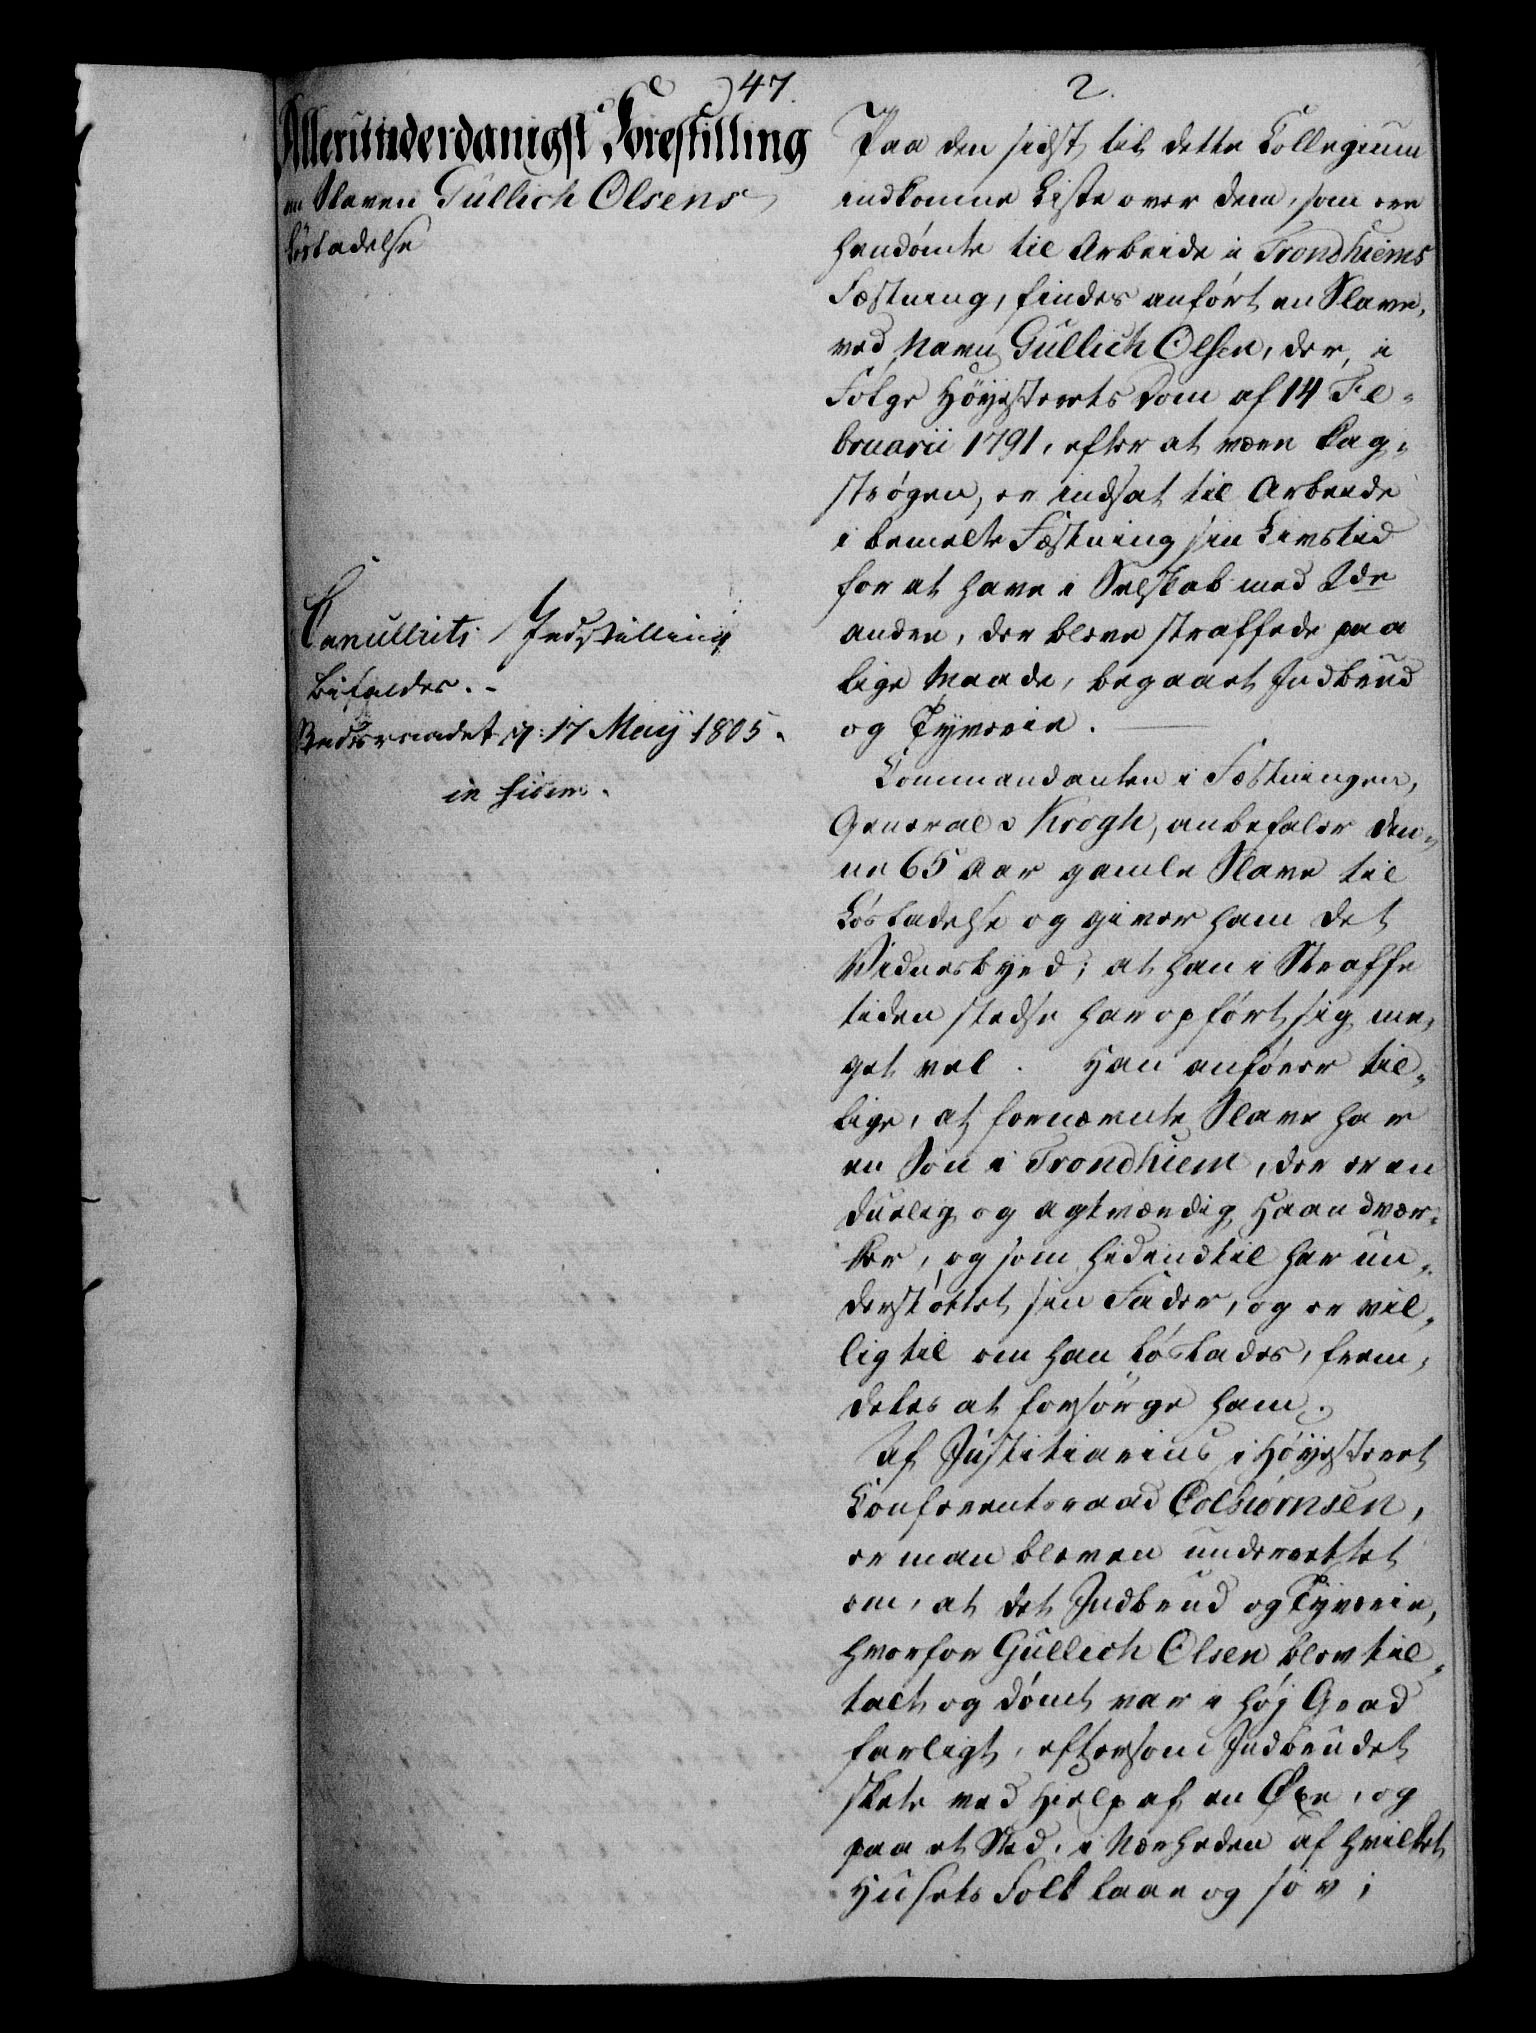 47.
Allerunderdanigst Forestilling
om Slaven Gullich Olsens
Løsladelse
Cancelliets Indstilling
bifaldes. -
Statsraadet d: 17 Maij 1805.
in fidem.
2.
Paa den sidst til dette Collegium
indkomne Liste over dem, som ere
hendømte til Arbeide i Trondhiems
Fæstning, findes anført en Slave,
ved Navn Gullich Olsen, der, i
Følge Høyesterets Dom af 14 Fe-
bruarii 1791, efter at være kag-
strøgen, er indsat til Arbeide
i bemelte Fæstning sin Livstid
for at have i Selskab med 2de
andre, der bleve straffede paa
lige Maade, begaaet Indbrud
og Tyverie.
Commandanten i Fæstningen,
General v Krogh, anbefaler den-
ne 65 Aar gamle Slave til
Løsladelse og giver ham det
Vidnesbyrd; at han i Straffe
tiden stedse har opført sig me-
get vel. Han anfører til-
lige, at fornævnte Slave har
en Søn i Trondhiem, der er en
duelig og agtværdig Haandvær-
ker, og som hidindtil har un-
derstøttet sin Fader, og er vil-
lig til om han løslades, frem-
deles at forsørge ham.
Af Justitiarius i Høyesteret
Conferentsraad Colbiørnsen,
er man bleven underrettet
om, at det Indbrud og Tyverie,
hvorfor Gullich Olsen blev til-
talt og dømt var i høj Grad
farligt, eftersom Indbrudet
skete ved Hielp af en Øxe, og
paa et Sted, i Nærheden af hvilket
Husets Folk laae og sov;